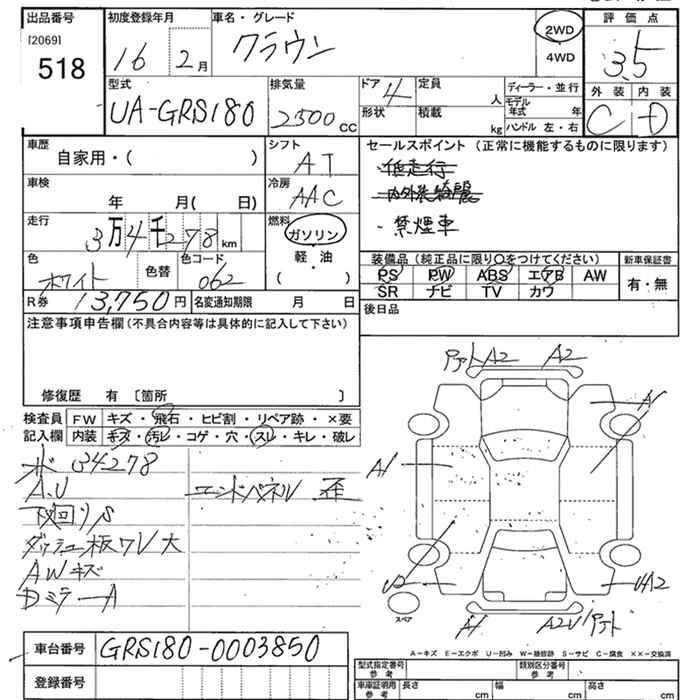 出品番号 初度登録年月 車名・グレード 評価点
[2069]
518 16 2月 クラウン 2WD 4WD 3.5
型式 排気量 ドア 4 定員 人 ディーラー・並行 外装 内装
UA-GRS180 2500cc 形状 積載 kg モデル年式 年 C D
ハンドル 左・右
車歴 シフト セールスポイント (正常に機能するものに限ります)
自家用・( ) AT 低走行
車検 冷房 内外装綺麗
年 月( 日) AAC ・禁煙車
走行 燃料
3万4千278km ガソリン
色 色替 色コード 軽・油 装備品(純正品に限り○をつけてください) 新車保証書
ホワイト 062 ( ) PS PW ABS エアB AW 有・無
R券 13,750円 名変通知期限 月 日 SR ナビ TV カワ
注意事項申告欄(不具合内容等は具体的に記入して下さい) 後日品
修復歴 有 〔箇所 〕
検査員 FW キズ・飛石・ヒビ割・リペア跡・×要
記入欄 内装 キズ・汚レ・コゲ・穴・スレ・キレ・破レ
34278
A.U エンドパネル 歪
下回りS
AWキズ
A2 A2
A1 A1
A1 A2
スペア
車台番号 GRS180-0003850
登録番号
A-キズ E-エクボ U-凹み W-補修跡 S-サビ C-腐食 ××-交換済
型式指定番号 参考 類別区分番号 参考
車庫証明用 参考 長さ cm 幅 cm 高さ cm